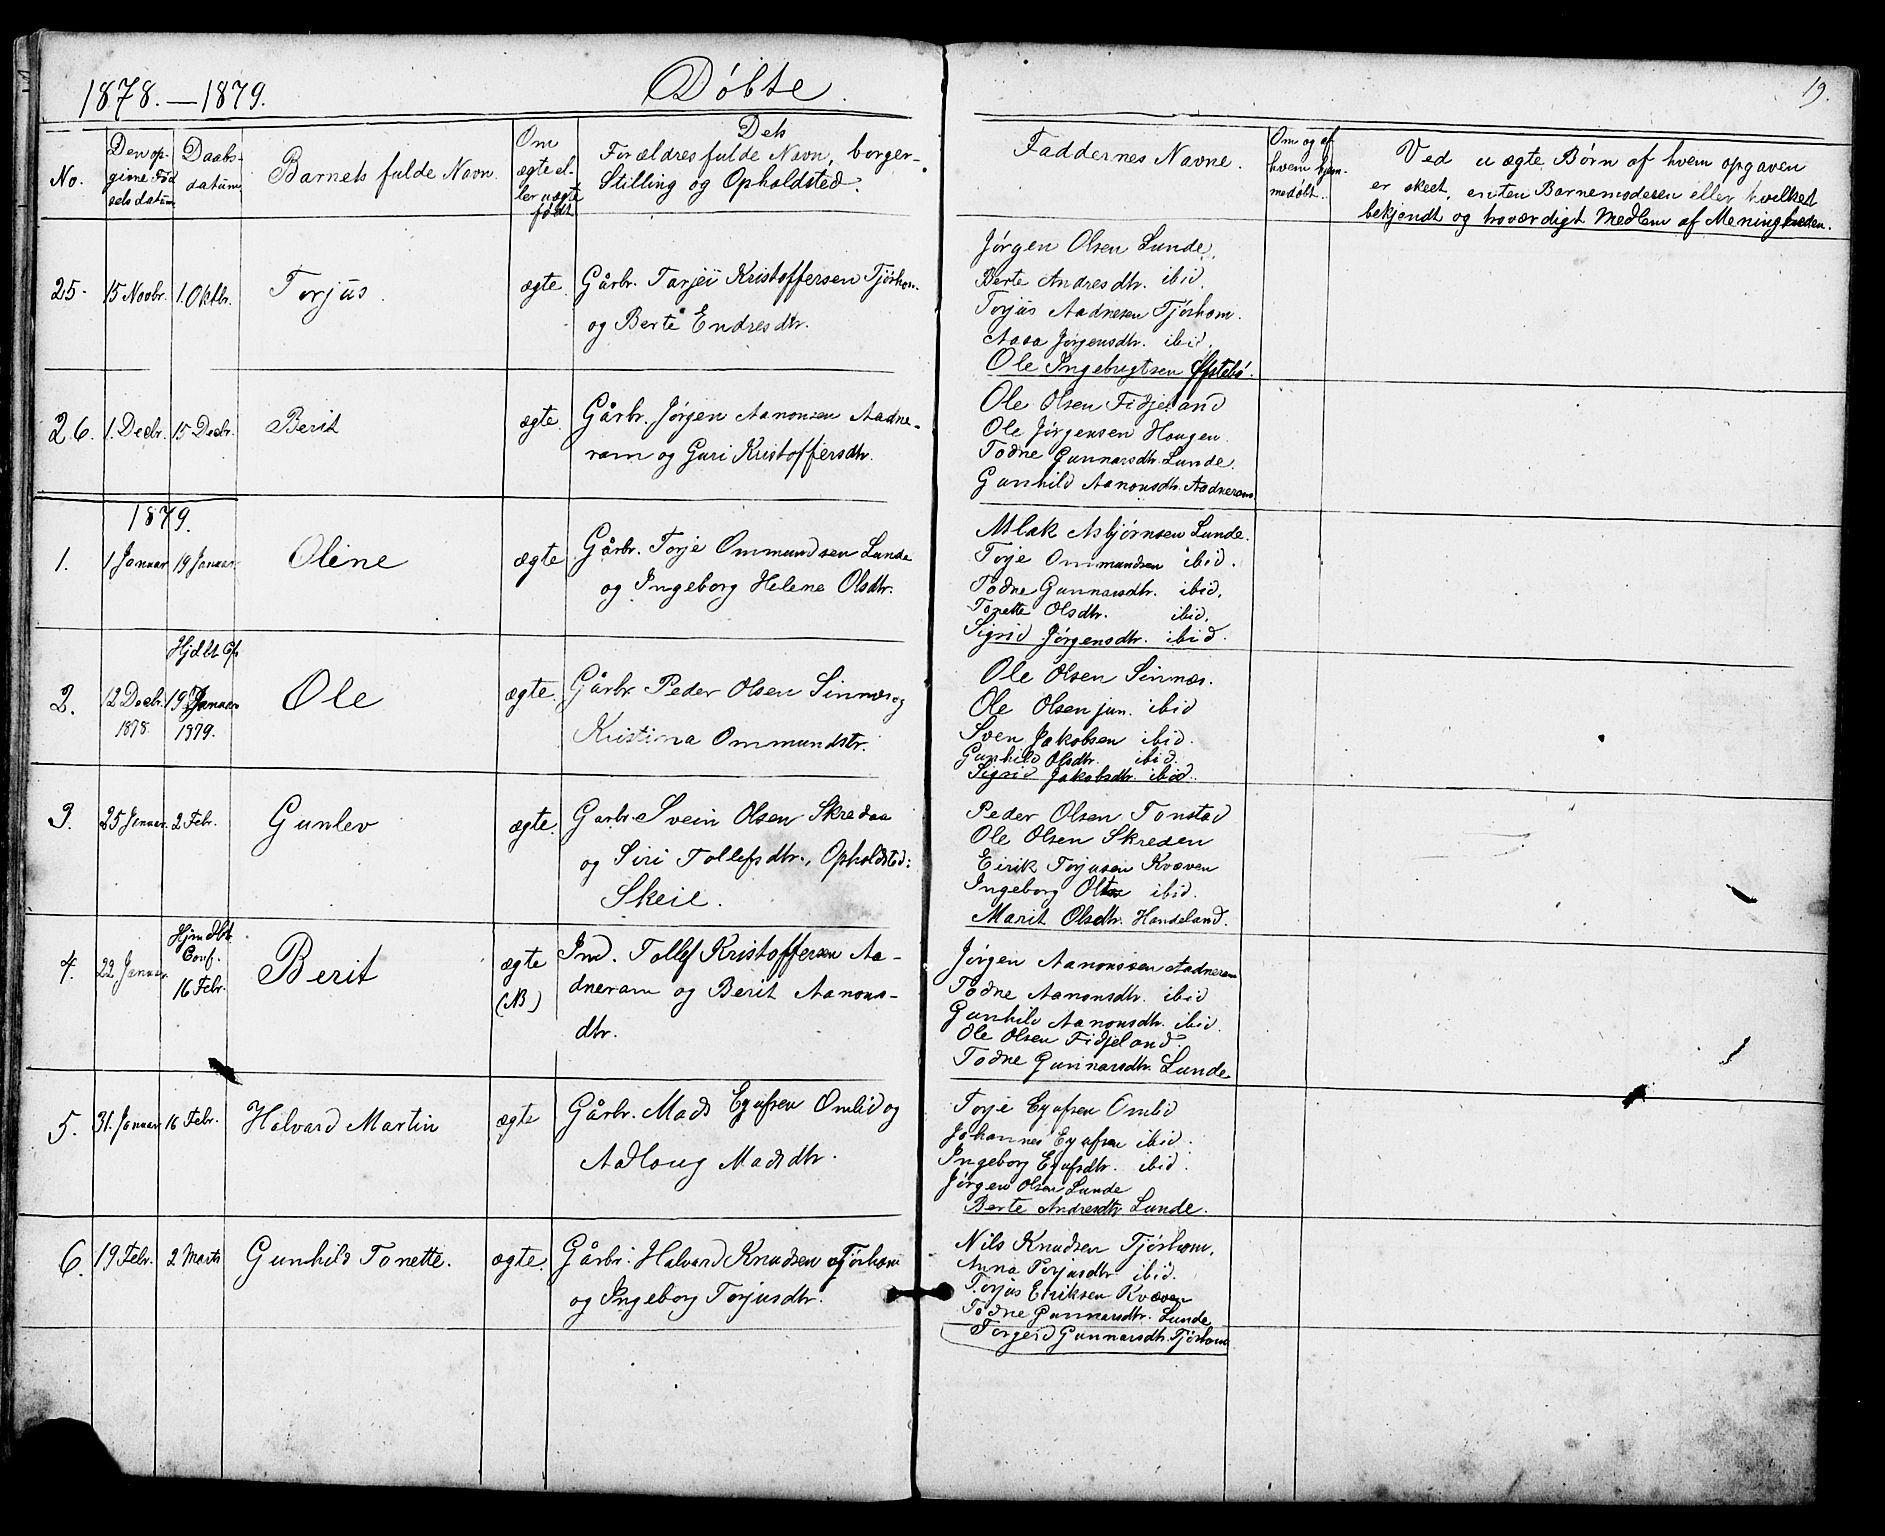 1878.—1879.
Døbte.
19.
No.
Den op-
givne Fød
selsdatum
Daabs-
datum
Barnets fulde Navn.
Om
ægte el-
ler uægte
født
Dets
Forældres fulde Navn, borger-
Stilling og Opholdsted.
Faddernes Navne.
Om og af
hvem hjem-
medøbt.
Ved uægte Børn af hvem opgaven
er skeet, enten Barnemoderen eller hvilket
bekjendt og troværdigt Medlem af Menigheden.
25. 15 Novbr. 1. Oktbr. Torjus. ægte. Gårbr. Tarjei Kristoffersen Tjørhom
og Berte Endresdtr.
Jørgen Olsen Lunde.
Berte Andresdtr. ibid.
Torjus Aadnesen Tjørhom.
Aasa Jørgensdtr. ibid.
Ole Ingebrigtsen Øftebø.
26. 1. Decbr. 15 Decbr. Berit ægte. Gårbr. Jørgen Aanonsen Aadne-
ram og Guri Kristoffersdtr.
Ole Olsen Fidjeland
Ole Jørgensen Hougen.
Todne Gunnarsdtr. Lunde.
Gunhild Aanonsdtr. Aadneram.
1879.
1. 1 Januar 19 Januar. Oline ægte Gårbr. Torje Ommundsen Lunde
og Ingeborg Helene Olsdtr.
Aslak Asbjørnsen Lunde.
Torje Ommundsen ibid.
Todne Gunnarsdtr. ibid.
Tonette Olsdtr. ibid.
Sigrid Jørgensdtr. ibid.
Hjdbt
2. 12 Decbr. 19 Januar Ole ægte. Gårbr. Peder Olsen Sinnes og
1878. 1979. Kristina Ommundstr.
Ole Olsen Sinnes.
Ole Olsen jun. ibid
Sven Jakobsen ibid.
Gunhild Olsdtr. ibid.
Sigrid Jakobsdtr. ibid.
3. 25 Januar. 2 Febr. Gunlev ægte. Garbr. Svein Olsen Skredaa
og Siri Tollefsdtr., Opholdsted:
Skeie.
Peder Olsen Tonstad
Ole Olsen Skreden
Eirik Torjusen Kvæven
Ingeborg ibid.
Marit Olsdtr. Handeland.
Hjmdbt
Conf.
4. 22 Januar. 16 Febr. Berit ægte Ind. Tollef Kristoffersen Aa-
(NB) dneram og Berit Aanons-
dtr.
Jørgen Aanonsen Aadneram
Todne Aanonsdtr. ibid
Gunhild Aanonsdtr. ibid.
Ole Olsen Fidjeland.
Todne Gunnarsdtr. Lunde
5. 31. Januar 16 Febr. Halvard Martin ægte Gårbr. Mads Eyufsen Omlid og
Aadloug Madsdtr.
Torje Eyufsen Omlid
Johannes Eyufsen ibid.
Ingeborg Eyufsdtr. ibid.
Jørgen Olsen Lunde
Berte Andresdtr Lunde.
6. 19 Febr. 2 Marts Gunhild Tonette. ægte. Gårbr. Halvard Knudsen Tjørhom
og Ingeborg Torjusdtr.
Nils Knudsen Tjørhom.
Anna Torjusdtr ibid.
Torjus Eriksen Kvæven
Todne Gunnarsdtr. Lunde
Torgerd Gunnarsdtr. Tjørhom